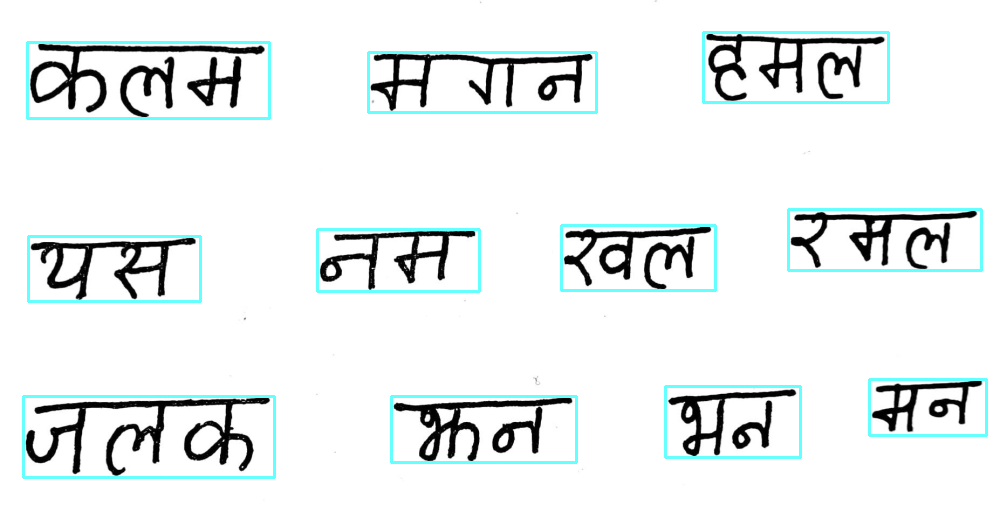 कलम मगन हमल
यस नम खल रमल
जलक झन भन मन